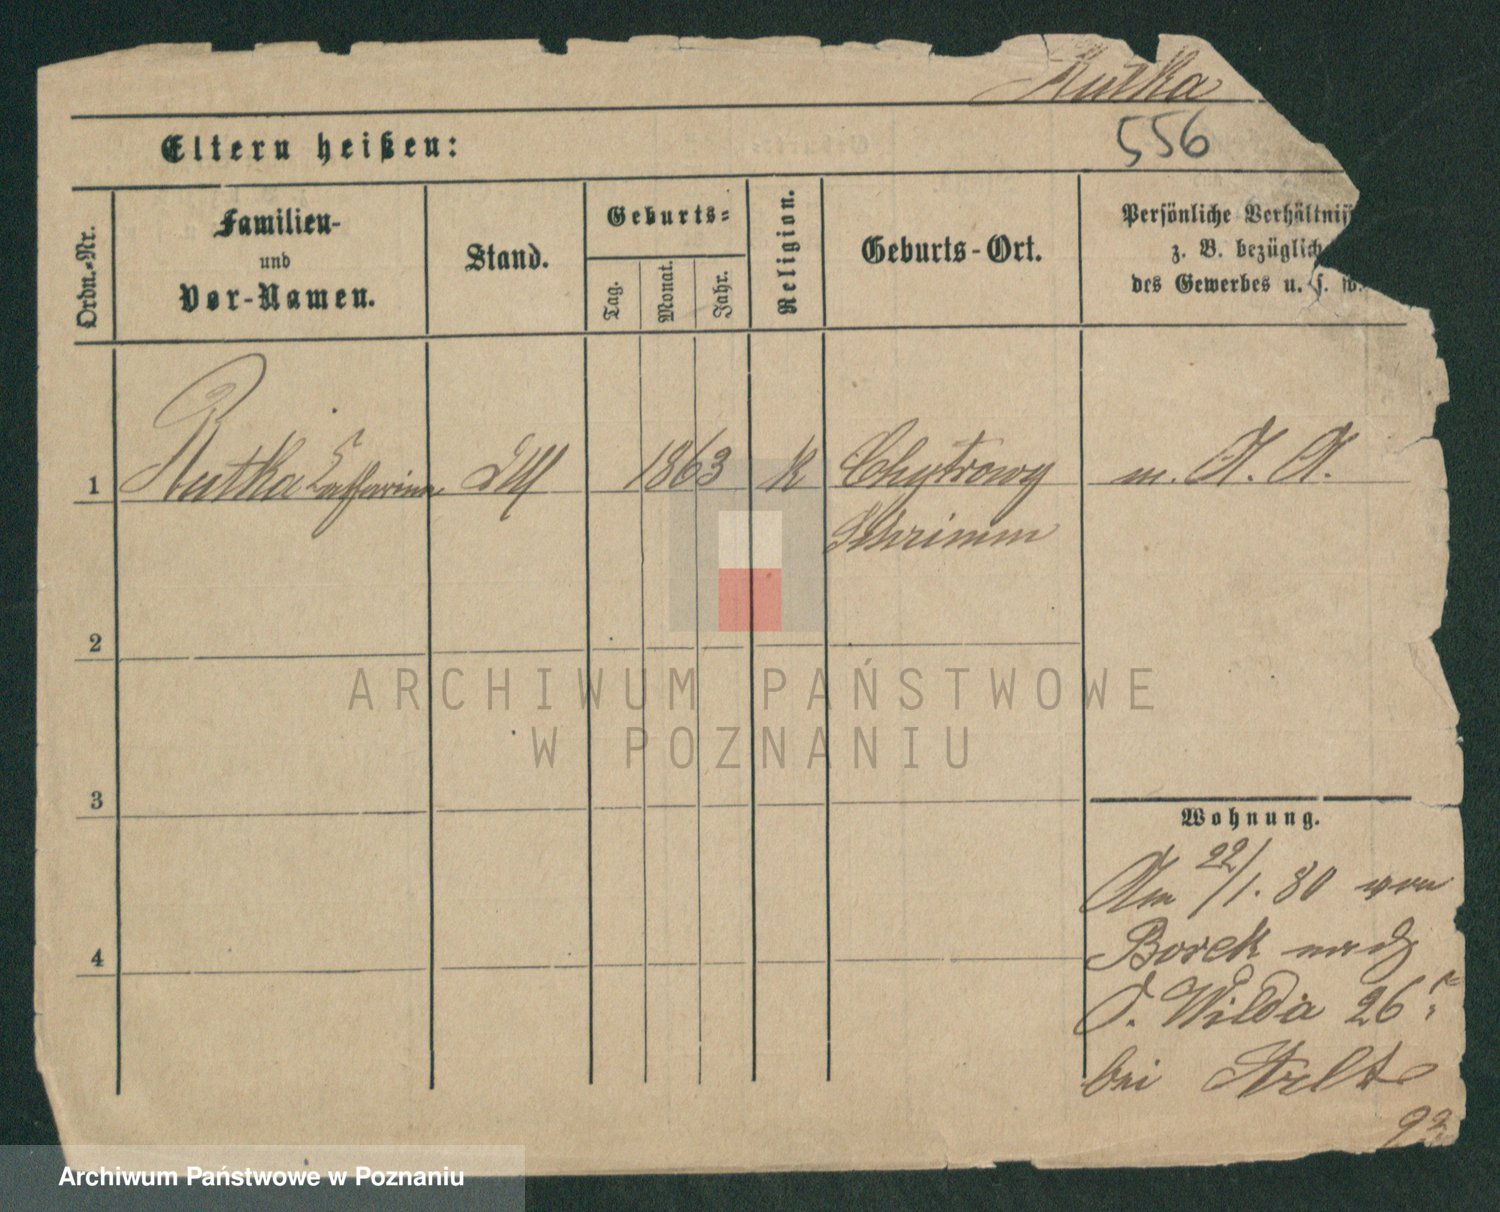 Rutka
556
Eltern heißen:
Ordn.-Nr.
Familien-
und
Vor-Namen.
Stand.
Geburts-
Tag.
Monat.
Jahr.
Religion.
Geburts-Ort.
Persönliche Verhältniss
z. B. bezüglich
des Gewerbes u. s. w.
1 Rutka Catharina 1863 K Chytrowy m. A. A.
Schrimm
2
ARCHIWUM PAŃSTWOWE
W POZNANIU
3
Wohnung.
Am 22/1. 80 von
4 Borek nach
O. Wilda 26
bei Arlt
Archiwum Państwowe w Poznaniu